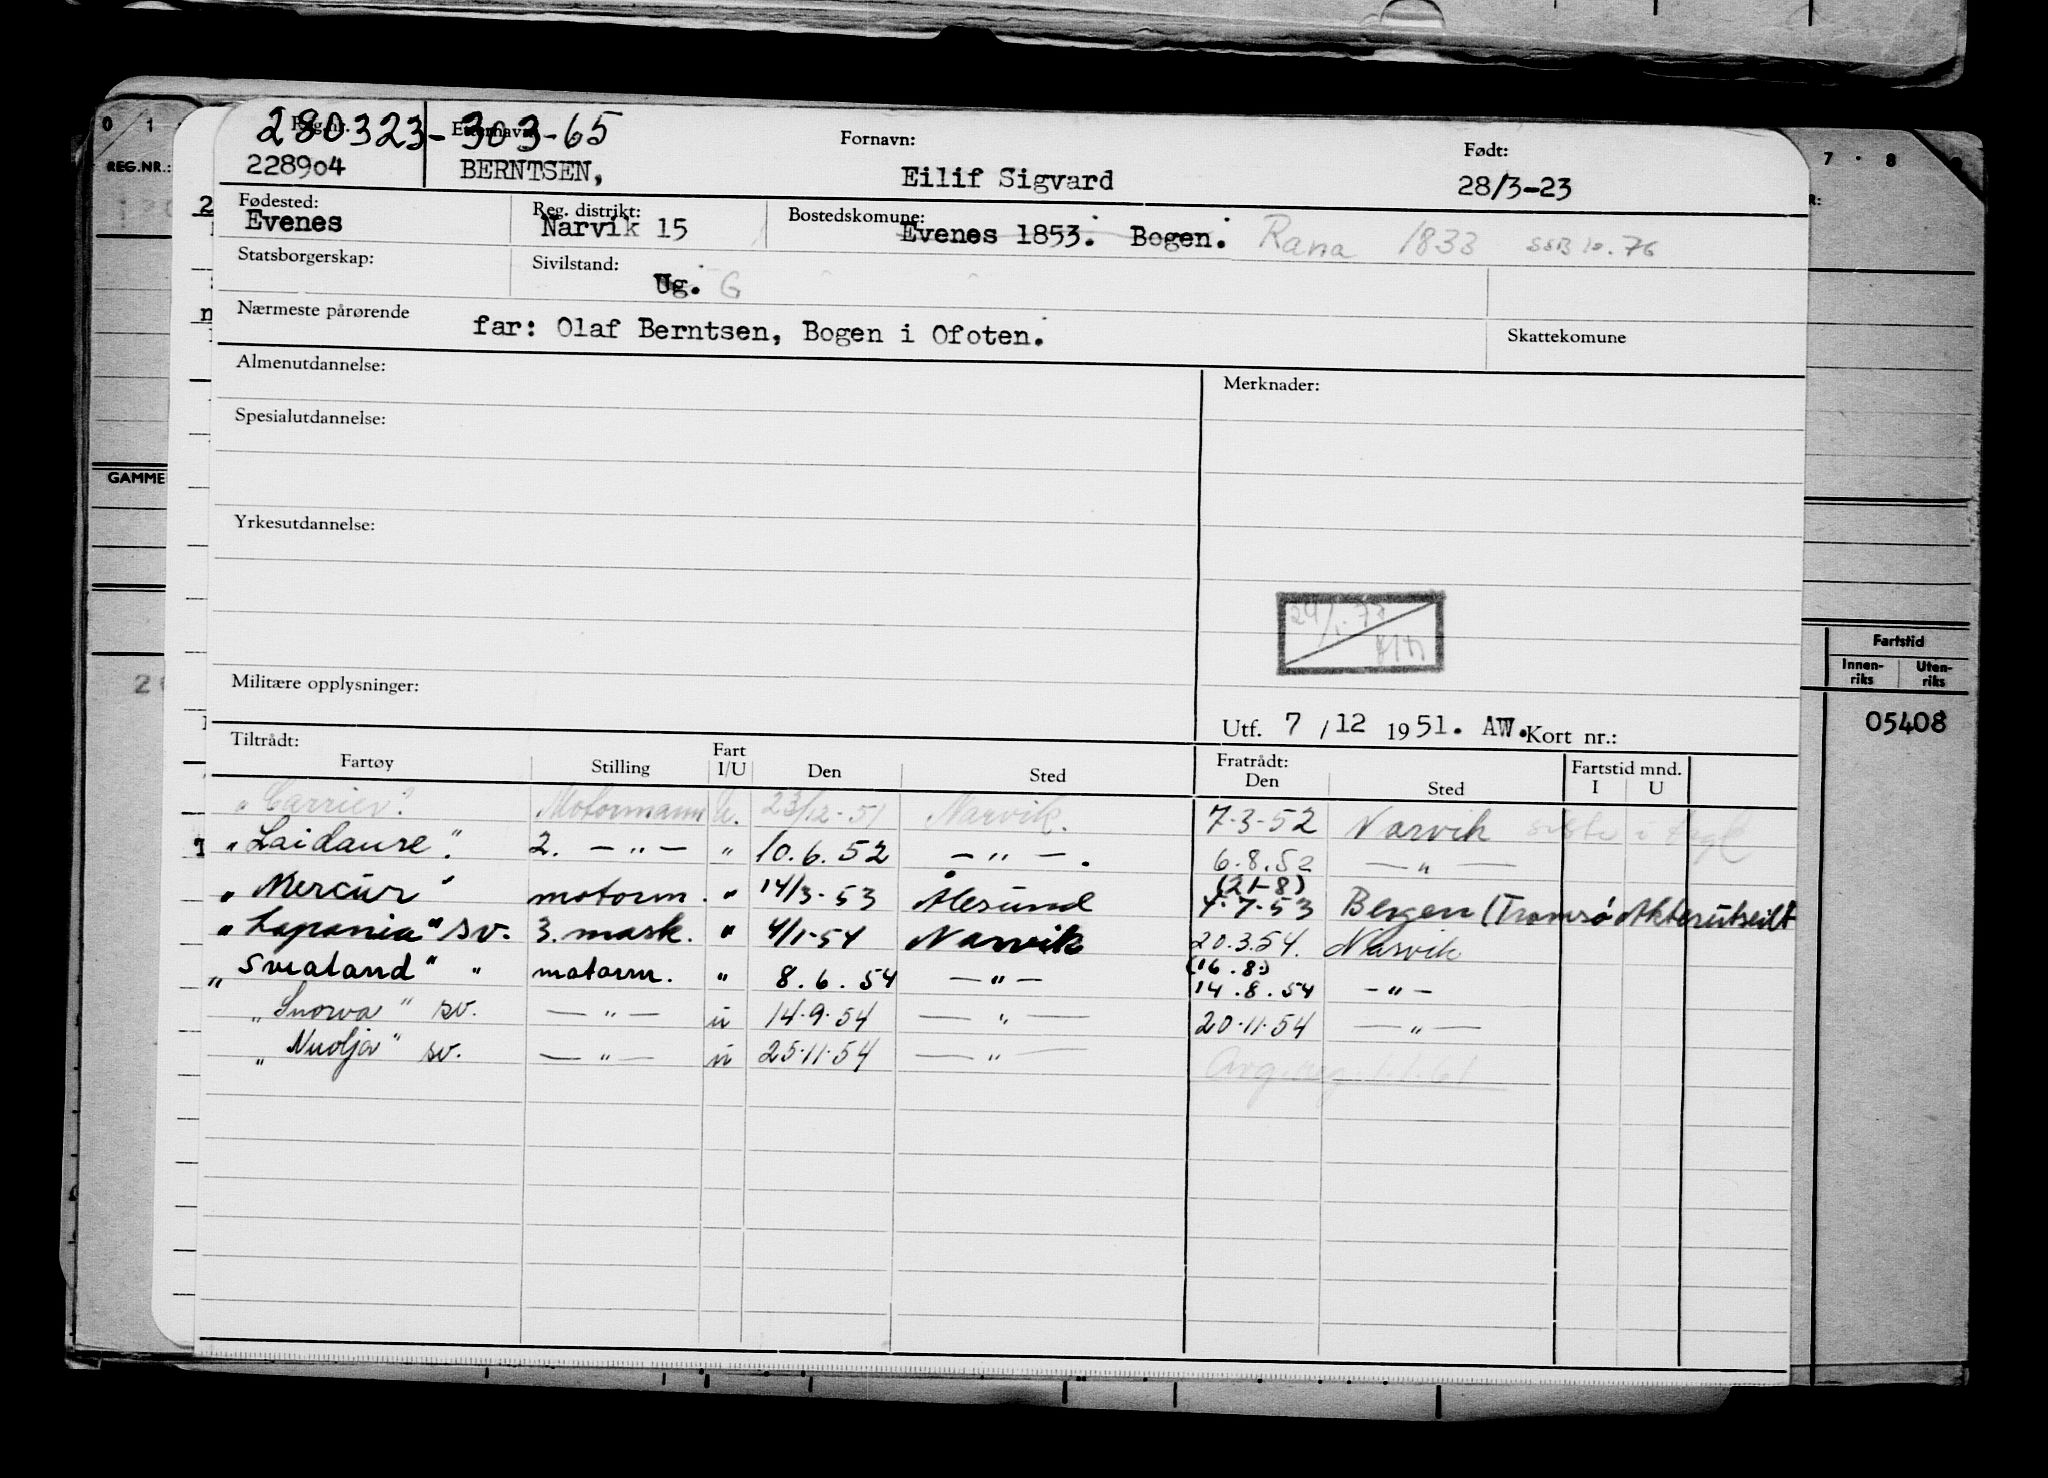 280323-303-65
Reg.nr. Etternavn: Fornavn: Født:
228904 BERNTSEN, Eilif Sigvard 28/3-23
Fødested: Reg. distrikt: Bostedskomune:
Evenes Narvik 15 Evenes 1853. Bogen. Rana 1833 SSB 10.76
Statsborgerskap: Sivilstand: Ug. G
Nærmeste pårørende far: Olaf Berntsen, Bogen i Ofoten. Skattekomune
Almenutdannelse: Merknader:
Spesialutdannelse:
Yrkesutdannelse:
Militære opplysninger:
Utf. 7/12 1951. AW. Kort nr.:
Tiltrådt: Fratrådt: Fartstid mnd.
Fartøy Stilling Fart I/U Den Sted Den Sted I U
"Carrier". Motormann U. 23/12-51 Narvik. 7-3-52 Narvik
"Laidaure". 2. — " — " 10.6.52 — " —. 6.8.52 — " —
(21-8)
"Mercur" motorm. " 14/3-53 Ålesund 4-7-53 Bergen (Tromsø Akterutseilt
"Lapania" sv. 3. mask. " 4/1-54 Narvik 20.3.54. Narvik
(16.8.)
"Svealand" " motorm. " 8.6.54 — " — 14.8.54 — " —
"Snorva" sv. — " — u 14.9.54 — " — 20.11.54 — " —
"Nuolja" sv. — " — u 25.11.54 — " —
REG.NR.:
GAMME
0 1
7 · 8
Fartstid
Innen-riks Uten-riks
05408